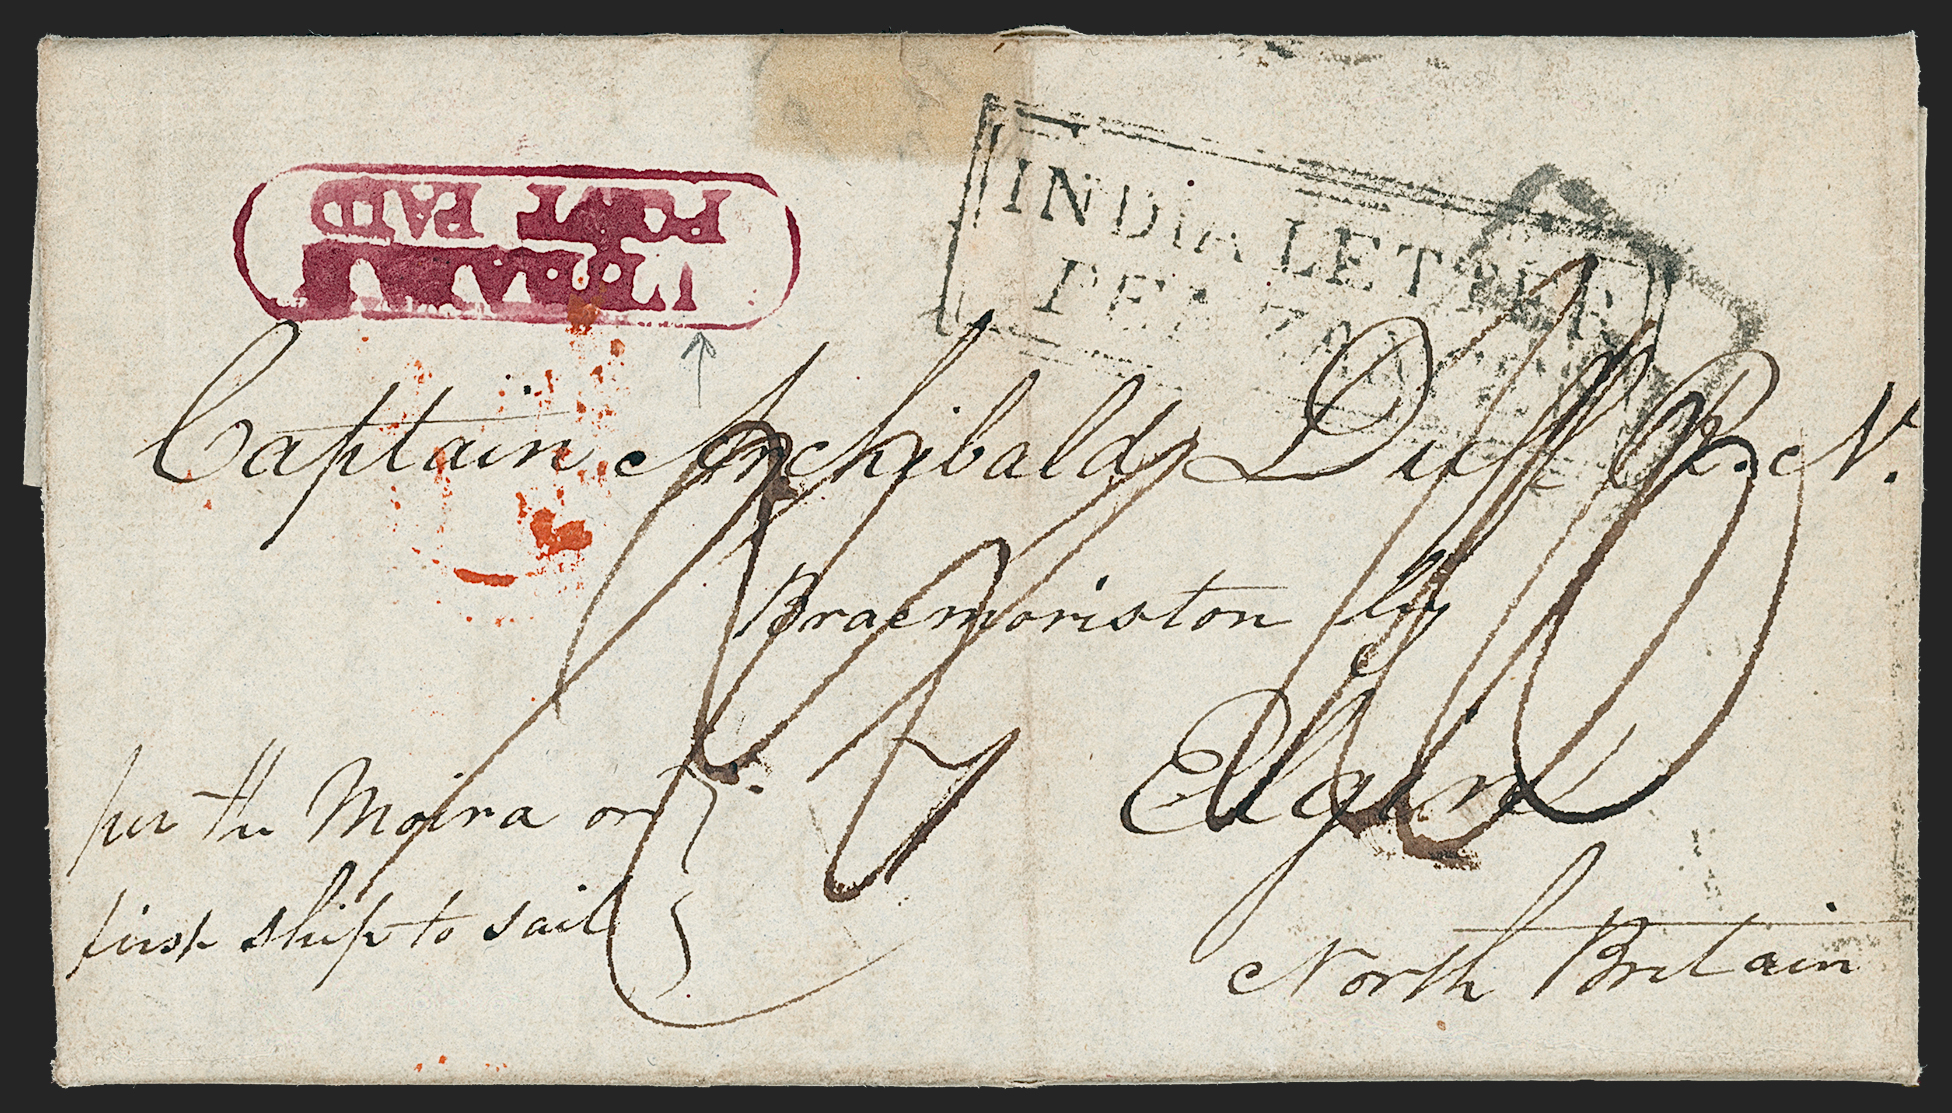 POST PAID
INDIA LETTER
PENZANCE
Captain Archibald Duff R. N.
Braemoriston by
Elgin
North Britain
per the Moira or
first ship to sail